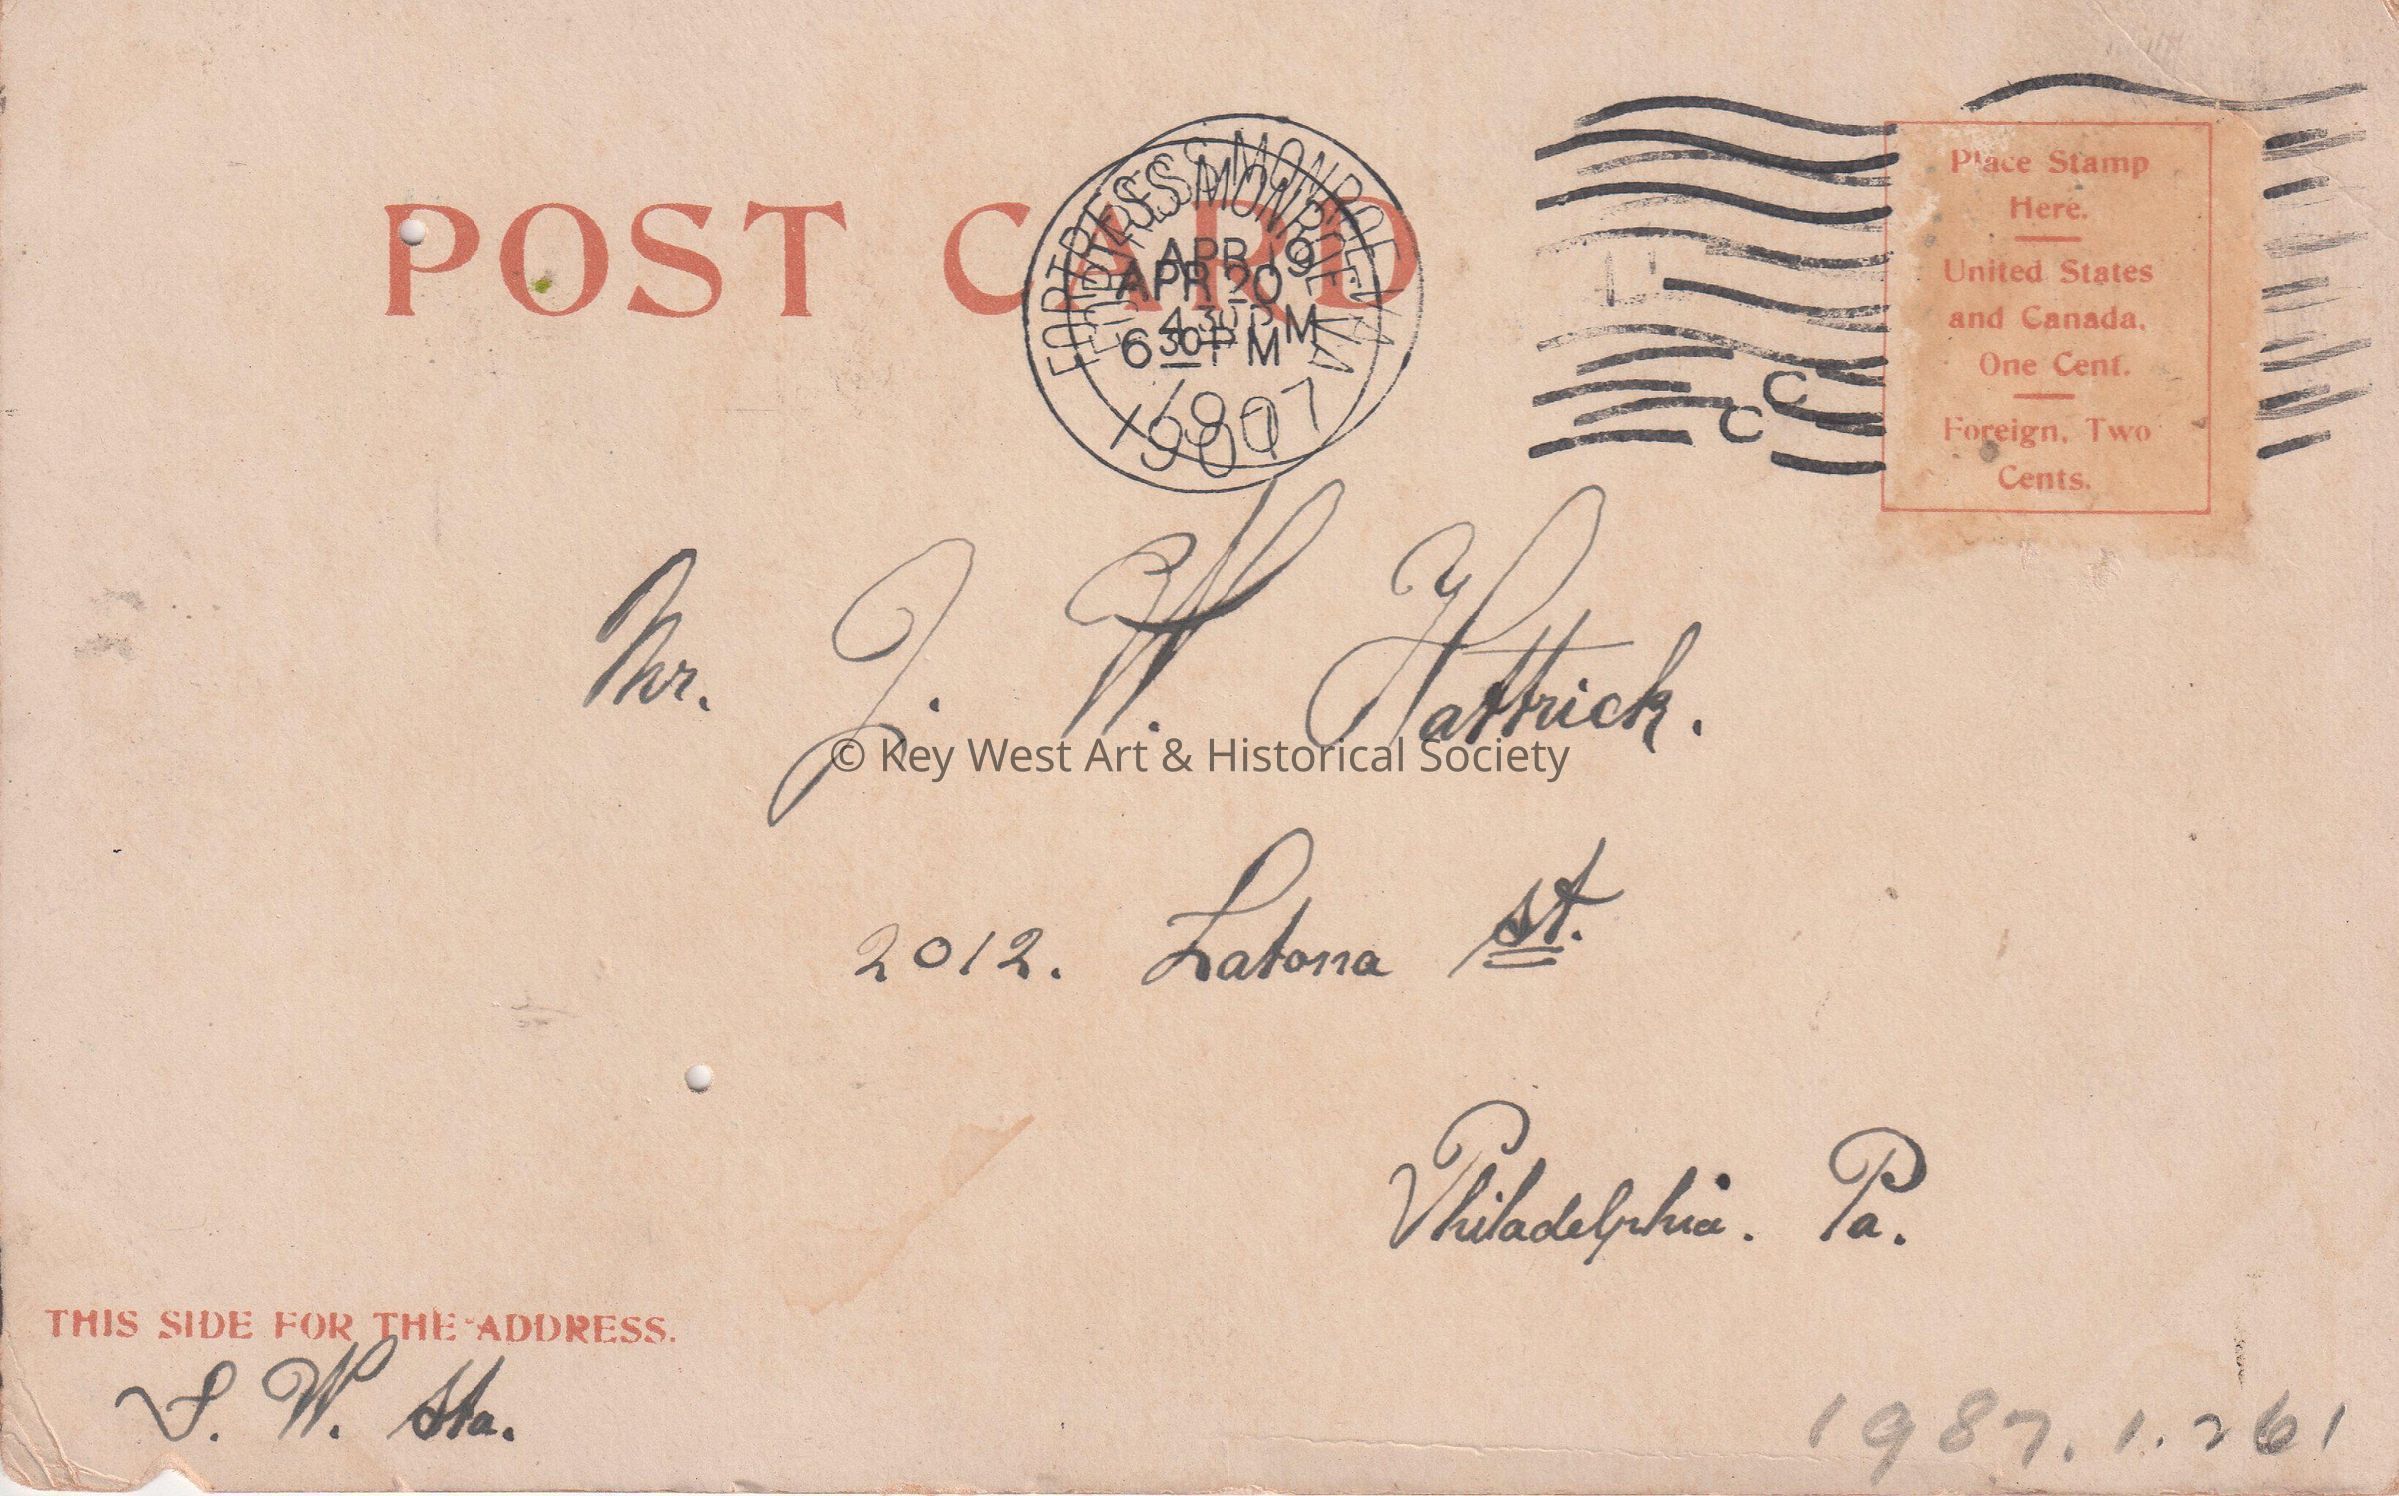 POST CARD
FORTRESS MONROE VA
APR 19
4 30 P M
1907
FORTRESS MONROE VA
APR 20
6 30 P M
1907
Place Stamp
Here.
United States
and Canada,
One Cent.
Foreign, Two
Cents.
C
C
Mr. J. W. Hattrick.
© Key West Art & Historical Society
2012. Latona St.
Philadelphia. Pa.
THIS SIDE FOR THE ADDRESS.
S. W. Sta.
1987.1.261